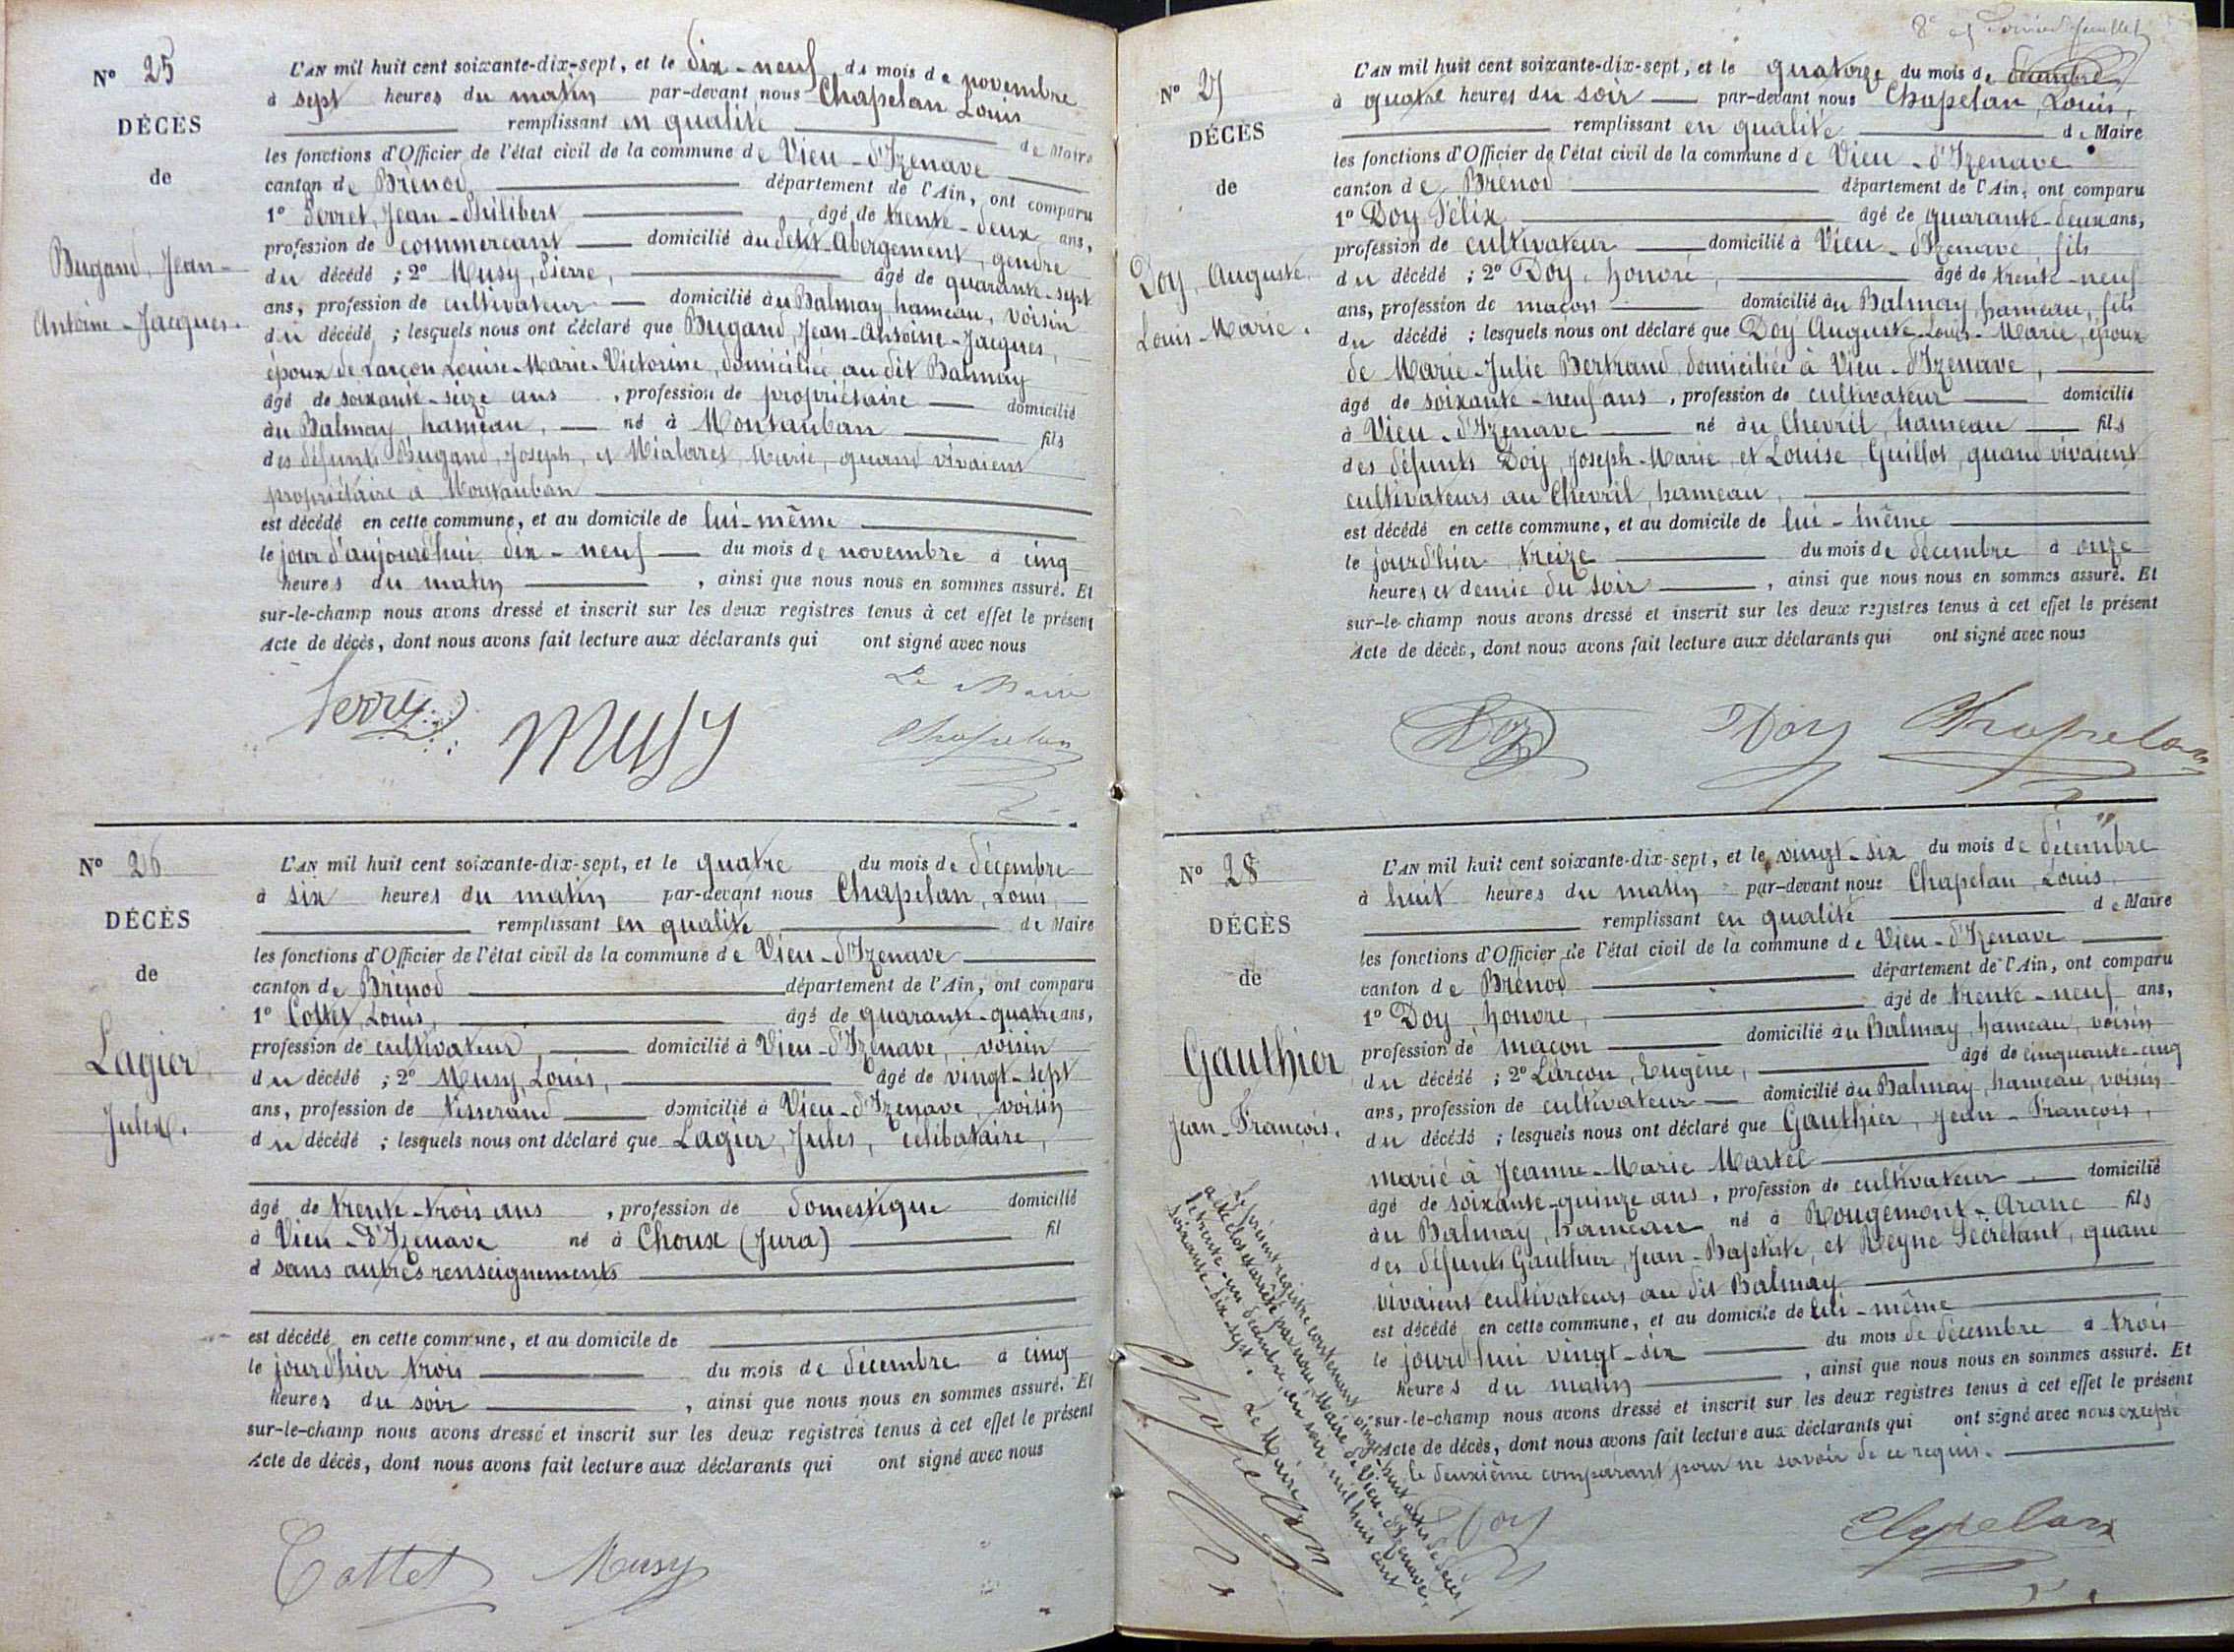 N° 25
DÉCÈS
de
Bugand, Jean-
Antoine-Jacques.
L'AN mil huit cent soixante-dix-sept, et le dix-neuf du mois de novembre
à sept heures du matin par-devant nous Chapelan Louis
remplissant en qualité de Maire
les fonctions d'Officier de l'état civil de la commune de Vieu-d'Izenave
canton de Brénod département de l'Ain, ont comparu
1° Perret, Jean-Philibert âgé de trente-deux ans,
profession de commerçant domicilié au Petit-Abergement, gendre
du décédé ; 2° Musy, Pierre, âgé de quarante-sept
ans, profession de cultivateur domicilié au Balmay hameau, voisin
du décédé ; lesquels nous ont déclaré que Bugand, Jean-Antoine-Jacques,
époux de Larçon Louise-Marie-Victorine, domiciliée au dit Balmay
âgé de soixante-seize ans , profession de propriétaire domicilié
au Balmay, hameau, né à Montauban fils
des défunts Bugand, Joseph, et Mialares, Marie, quand vivaient
propriétaire à Montauban
est décédé en cette commune, et au domicile de lui-même
le jour d'aujourd'hui dix-neuf du mois de novembre à cinq
heures du matin , ainsi que nous nous en sommes assuré. Et
sur-le-champ nous avons dressé et inscrit sur les deux registres tenus à cet effet le présent
Acte de décès, dont nous avons fait lecture aux déclarants qui ont signé avec nous
Le Maire
Perret Musy Chapelan
N° 26
DÉCÈS
de
Lagier,
Jules.
L'AN mil huit cent soixante-dix-sept, et le quatre du mois de décembre
à six heures du matin par-devant nous Chapelan, Louis,
remplissant en qualité de Maire
les fonctions d'Officier de l'état civil de la commune de Vieu-d'Izenave
canton de Brénod département de l'Ain, ont comparu
1° Cottet, Louis, âgé de quarante-quatre ans,
profession de cultivateur, domicilié à Vieu-d'Izenave, voisin
du décédé ; 2° Musy, Louis, âgé de vingt-sept
ans, profession de tisserand domicilié à Vieu-d'Izenave, voisin
du décédé ; lesquels nous ont déclaré que Lagier, Jules, célibataire,
âgé de trente-trois ans , profession de domestique domicilié
à Vieu-d'Izenave né à Choux (Jura) fil
d sans autres renseignements
est décédé en cette commune, et au domicile de
le jour d'hier trois du mois de décembre à cinq
heures du soir , ainsi que nous nous en sommes assuré. Et
sur-le-champ nous avons dressé et inscrit sur les deux registres tenus à cet effet le présent
Acte de décès, dont nous avons fait lecture aux déclarants qui ont signé avec nous
Cottet Musy
8e et Dernier feuillet
N° 27
DÉCÈS
de
Doy, Auguste
Louis-Marie.
L'AN mil huit cent soixante-dix-sept, et le quatorze du mois de décembre
à quatre heures du soir par-devant nous Chapelan, Louis,
remplissant en qualité de Maire
les fonctions d'Officier de l'état civil de la commune de Vieu-d'Izenave
canton de Brénod département de l'Ain, ont comparu
1° Doy Félix âgé de quarante-deux ans,
profession de cultivateur domicilié à Vieu-d'Izenave, fils
du décédé ; 2° Doy, honoré, âgé de trente-neuf
ans, profession de maçon domicilié au Balmay, hameau, fils
du décédé ; lesquels nous ont déclaré que Doy Auguste-Louis-Marie, époux
de Marie-Julie Bertrand, domiciliée à Vieu-d'Izenave,
âgé de soixante-neuf ans , profession de cultivateur domicilié
à Vieu-d'Izenave né au Chevril, hameau fils
des défunts Doy, Joseph-Marie, et Louise Guillot, quand vivaient
cultivateurs au Chevril, hameau,
est décédé en cette commune, et au domicile de lui-même
le jour d'hier treize du mois de décembre à onze
heures et demie du soir , ainsi que nous nous en sommes assuré. Et
sur-le-champ nous avons dressé et inscrit sur les deux registres tenus à cet effet le présent
Acte de décès, dont nous avons fait lecture aux déclarants qui ont signé avec nous
Doy Doy Chapelan
N° 28
DÉCÈS
de
Gauthier
Jean-François.
L'AN mil huit cent soixante-dix-sept, et le vingt-six du mois de décembre
à huit heures du matin par-devant nous Chapelan, Louis
remplissant en qualité de Maire
les fonctions d'Officier de l'état civil de la commune de Vieu-d'Izenave
canton de Brénod département de l'Ain, ont comparu
1° Doy, honoré, âgé de trente-neuf ans,
profession de maçon domicilié au Balmay, hameau, voisin
du décédé ; 2° Larçon, Eugène, âgé de cinquante-cinq
ans, profession de cultivateur domicilié au Balmay, hameau, voisin
du décédé ; lesquels nous ont déclaré que Gauthier, Jean-François,
marié à Jeanne-Marie Martel
âgé de soixante-quinze ans , profession de cultivateur domicilié
au Balmay, hameau né à Rougemont-Aranc fils
des défunts Gauthier, Jean-Baptiste, et Reyne Secrétant, quand
vivaient cultivateurs au dit Balmay
est décédé en cette commune, et au domicile de lui-même
le jourd'hui vingt-six du mois de décembre à trois
heures du matin , ainsi que nous nous en sommes assuré. Et
sur-le-champ nous avons dressé et inscrit sur les deux registres tenus à cet effet le présent
Acte de décès, dont nous avons fait lecture aux déclarants qui ont signé avec nous excepté
le deuxième comparant pour ne savoir de ce requis.
Doy Chapelan
Le présent registre contenant vingt-huit actes de décès
a été clos et arrêté par nous, Maire de Vieu-d'Izenave,
le trente-un décembre, au soir, mil huit cent
soixante-dix-sept. Le Maire
Chapelan